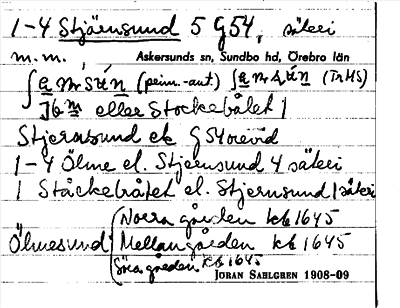 1-4 Stjärnsund 5 G54, säteri
m.m. , Askersunds sn, Sundbo hd, Örebro län
(prim.-aut.) (TrHS)
eller Stockebålet 1
Stjernsund ek G54
1-4 Ölme el. Stjernsund 4 säteri
1 Ståckebålet el. Stjernsund 1 säteri
Norra gården kb 1645
Ölmesund Mellangården kb 1645
Södra gården kb 1645
JORAN SAHLGREN 1908-09